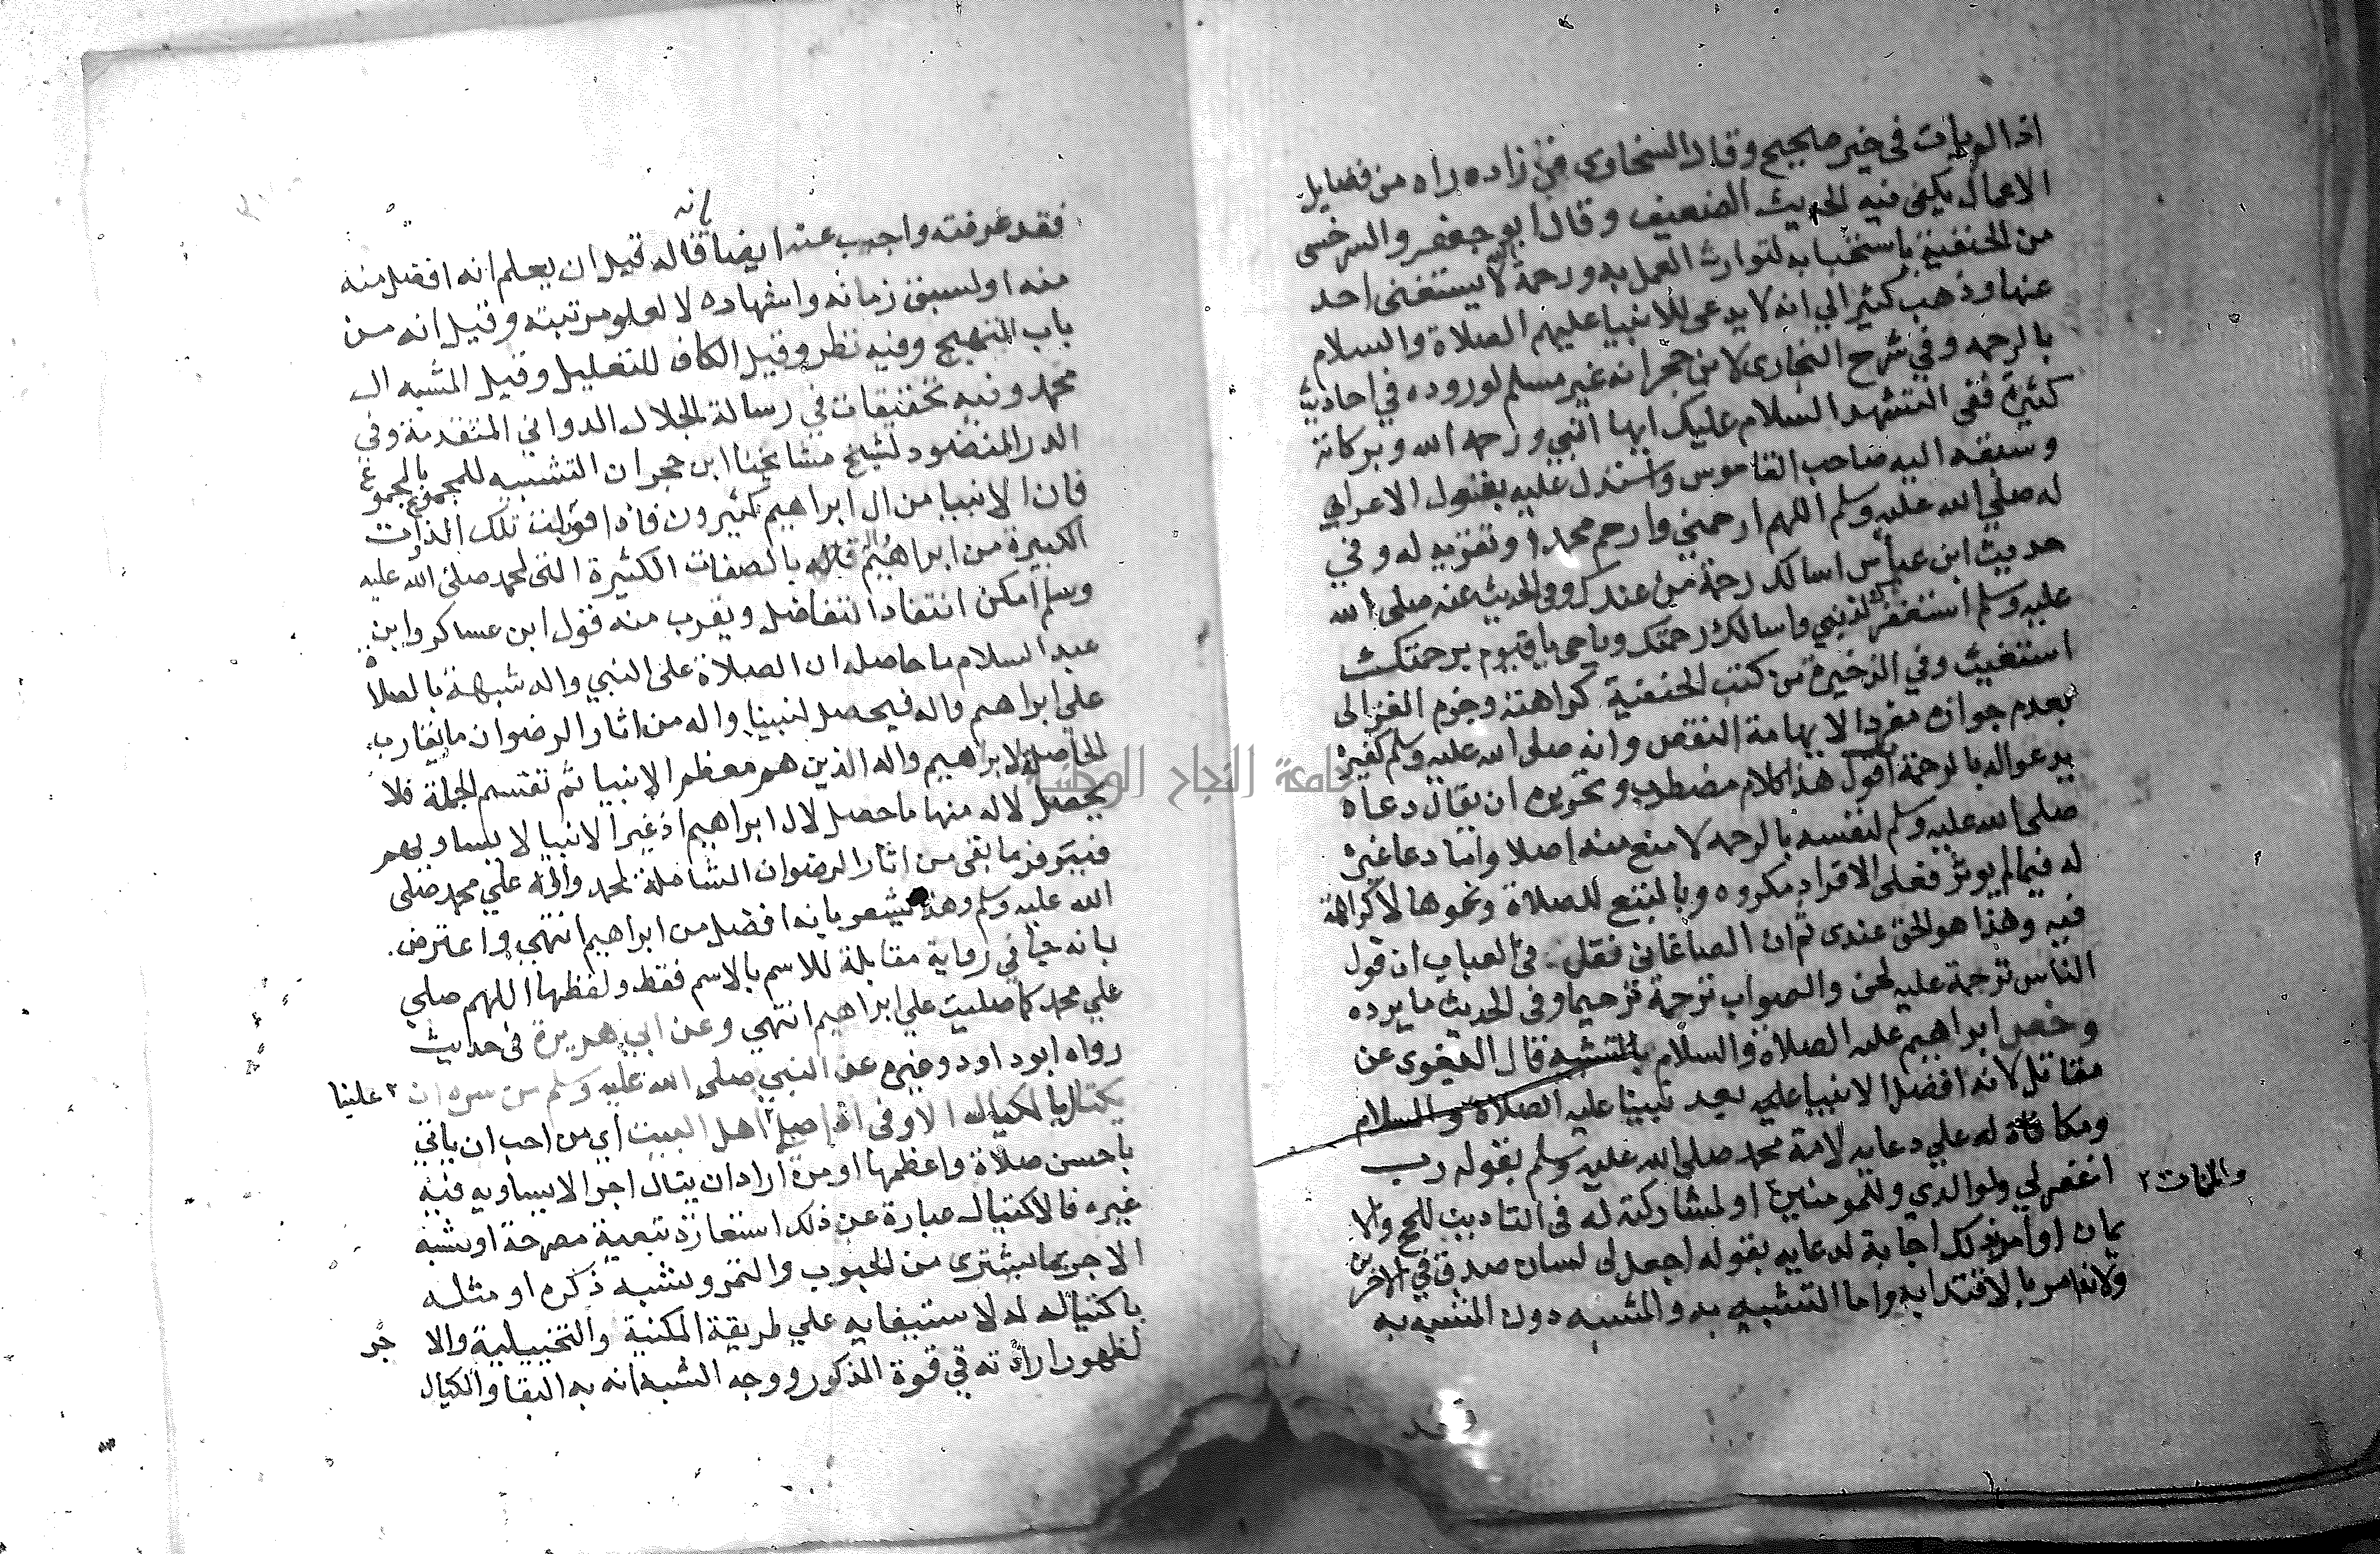 اذا لم يات في خبر صحيح وقال السخاوي فمن زاده راه من فضايل
الاعمال يكفي فيه الحديث الضعيف وقال ابو جعفر والسرخسي
من الحنفية باستحبابه لتوارث العمل به ورحمة لا يستغنى احد
عنها وذهب كثير الي انه لا يدعى للانبيا عليهم الصلاة والسلام
بالرحمه وفي شرح البخارى لابن حجر انه غير مسلم لوروده في احاديث
كثيرة ففى التشهد السلام عليك ايها النبي ورحمه الله وبركاته
وسبقه اليه صاحب القاموس واستدل عليه بقول الاعرابي
له صلي الله عليه وسلم اللهم ارحمني وارحم محمدا وتقريره له وفي
حديث ابن عباس اسالك رحمة من عندك وفي الحديث عنه صلى الله
عليه وسلم استغفرك لذنبي واسالك رحمتك وياحي يا قيوم برحمتك
استغيث وفي الذخيرة من كتب الحنفية كراهته وجزم الغزالى
بعدم جوازه مفردا لايهامه النقص وانه صلى الله عليه وسلم كغيره
يدعوا له بالرحمة اقول هذا كلام مضطرب وتحريره ان يقال دعاه
صلى الله عليه وسلم لنفسه بالرحمه لا منع منه اصلا واما دعا غيره
له فيما لم يوثر فعلى الافراد مكروه وبالتبع للصلاة ونحوها لا كراهة
فيه وهذا هو الحق عندى ثم ان الصاغاني فقل في العباب ان قول
الناس ترحمة عليه لحن والصواب ترحمة ترحيما وفى الحديث ما يرده
وخص ابراهيم عليه الصلاة والسلام بالتشبه قال البغوى عن
مقاتل لانه افضل الانبيا علي بعد نبينا عليه الصلاة والسلام
ومكافاة له علي دعايه لامة محمد صلى الله عليه وسلم بقوله رب
اغفر لي ولوالدي وللمومنين اولمشاركته له فى التاديب للحج والا
والمومنات ٢
يمان او امر ذلك اجابة لدعايه بقوله اجعل لى لسان صدق في الاخرين
ولانه امر بالاقتدا به واما التشبيه به والمشبه دون المشبه به
فقد
فقد عرفته واجيب عنه ايضا بانه قاله قبل ان يعلم انه افضل منه
منه اولسبق زمانه واشتهاره لا لعلو مرتبته وقيل انه من
باب التهييج وفيه نظر وقيل الكاف للتعليل وقيل المشبه ال
محمد وفيه تحقيقات في رسالة الجلال الدواني المتقدمة وفي
الدر المنضود لشيخ مشايخنا ابن حجر ان التشبيه للمجموع بالمجموع
فان الانبيا من ال ابراهيم كثيرون فاذا قوبلت تلك الذوات
الكثيرة من ابراهيم واله بالصفات الكثيرة التى لمحمد صلى الله عليه
وسلم امكن انتفا التفاضل ويقرب منه قول ابن عساكر وابن
عبد السلام ما حاصله ان الصلاة على النبي واله شبهة بالصلاة
علي ابراهيم واله فيحصل لنبينا واله من اثار الرضوان ما يقارب
الحاصلة لابراهيم واله الذين هم معظم الانبيا ثم تقتسم الجملة فلا
يحصل لاله منها ما حصل لال ابراهيم اذ غير الانبيا لا يساويهم
فيتوفر ما بقي من اثار الرضوان الشاملة لمحمد واله علي محمد صلى
الله عليه وسلم وهذا يشعر بانه افضل من ابراهيم انتهي واعترض
بانه جا في رواية مقابلة للاسم بالاسم فقط ولفظها اللهم صلي
علي محمد كما صليت علي ابراهيم انتهي وعن ابي هريرة فى حديث
رواه ابو داود وغيره عن النبي صلى الله عليه وسلم من سره ان
يكتال بالمكيال الاوفى اذا صلي اهل البيت اي من احب ان ياتي
علينا ٢
باحسن صلاة واعظمها او من اراد ان ينال اجرا لا يساويه فيه
غيره فالاكتيال عبارة عن ذلك استعارة تبعية مصرحة او شبه
الاجر بما يشترى من الحبوب والتمر وشبه ذكره او مثله
باكتياله له لاستيفايه علي طريقة المكنية والتخييلية والا
جر
لظهور ارادته في قوة المذكور ووجه الشبه انه به البقا والكيال